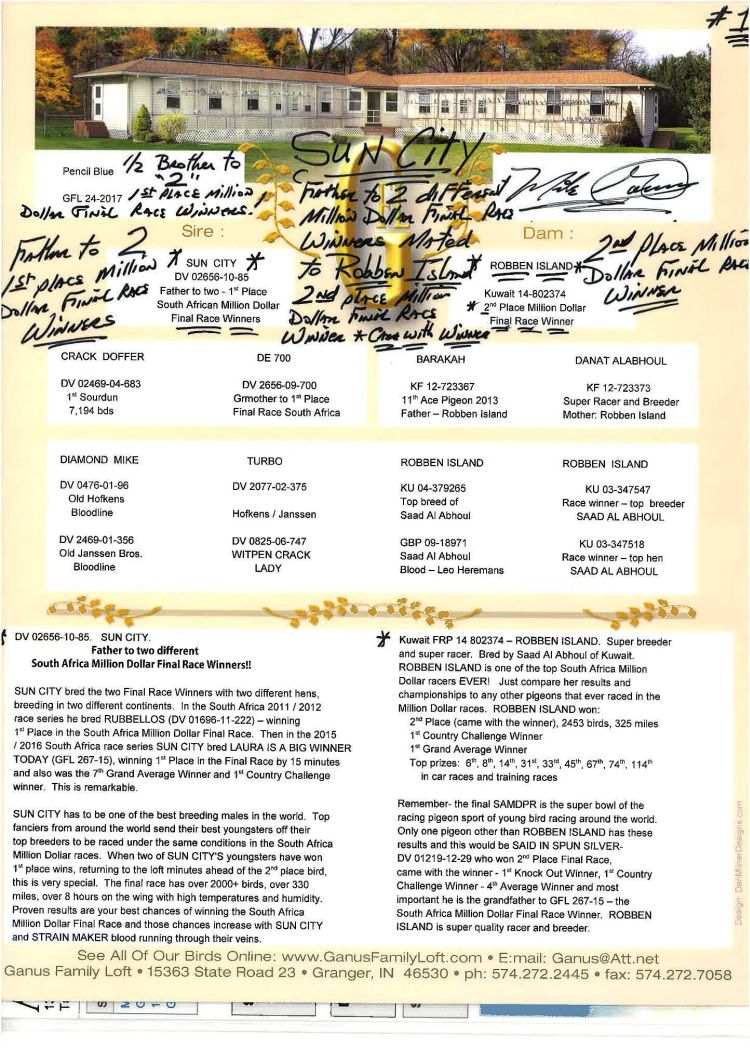 #1
SUN CITY
Pencil Blue
GFL 24-2017
1/2 Brother to
"2"
1ST PLACE Million
Dollar Final Race Winners!
Father to 2 different
Million Dollar Final Race
Winners Mated
to Robben Island
2nd place Million
Dollar Final Race
Winner * Came with Winner
Sire :
Dam :
Father to 2
1st place Million
Dollar Final Race
Winners
* SUN CITY *
DV 02656-10-85
Father to two - 1st Place
South African Million Dollar
Final Race Winners
* ROBBEN ISLAND *
Kuwait 14-802374
* 2nd Place Million Dollar
Final Race Winner
2nd place Million
Dollar Final Race
Winner
CRACK DOFFER
DV 02469-04-683
1st Sourdun
7,194 bds
DE 700
DV 2656-09-700
Grmother to 1st Place
Final Race South Africa
BARAKAH
KF 12-723367
11th Ace Pigeon 2013
Father – Robben Island
DANAT ALABHOUL
KF 12-723373
Super Racer and Breeder
Mother: Robben Island
DIAMOND MIKE
DV 0476-01-96
Old Hofkens
Bloodline
DV 2469-01-356
Old Janssen Bros.
Bloodline
TURBO
DV 2077-02-375
Hofkens / Janssen
DV 0825-06-747
WITPEN CRACK
LADY
ROBBEN ISLAND
KU 04-379265
Top breed of
Saad Al Abhoul
GBP 09-18971
Saad Al Abhoul
Blood – Leo Heremans
ROBBEN ISLAND
KU 03-347547
Race winner – top breeder
SAAD AL ABHOUL
KU 03-347518
Race winner – top hen
SAAD AL ABHOUL
DV 02656-10-85. SUN CITY.
Father to two different
South Africa Million Dollar Final Race Winners!!
SUN CITY bred the two Final Race Winners with two different hens,
breeding in two different continents. In the South Africa 2011 / 2012
race series he bred RUBBELLOS (DV 01696-11-222) – winning
1st Place in the South Africa Million Dollar Final Race. Then in the 2015
/ 2016 South Africa race series SUN CITY bred LAURA IS A BIG WINNER
TODAY (GFL 267-15), winning 1st Place in the Final Race by 15 minutes
and also was the 7th Grand Average Winner and 1st Country Challenge
winner. This is remarkable.
SUN CITY has to be one of the best breeding males in the world. Top
fanciers from around the world send their best youngsters off their
top breeders to be raced under the same conditions in the South Africa
Million Dollar races. When two of SUN CITY'S youngsters have won
1st place wins, returning to the loft minutes ahead of the 2nd place bird,
this is very special. The final race has over 2000+ birds, over 330
miles, over 8 hours on the wing with high temperatures and humidity.
Proven results are your best chances of winning the South Africa
Million Dollar Final Race and those chances increase with SUN CITY
and STRAIN MAKER blood running through their veins.
* Kuwait FRP 14 802374 – ROBBEN ISLAND. Super breeder
and super racer. Bred by Saad Al Abhoul of Kuwait.
ROBBEN ISLAND is one of the top South Africa Million
Dollar racers EVER! Just compare her results and
championships to any other pigeons that ever raced in the
Million Dollar races. ROBBEN ISLAND won:
2nd Place (came with the winner), 2453 birds, 325 miles
1st Country Challenge Winner
1st Grand Average Winner
Top prizes: 6th, 8th, 14th, 31st, 33rd, 45th, 67th, 74th, 114th
in car races and training races
Remember- the final SAMDPR is the super bowl of the
racing pigeon sport of young bird racing around the world.
Only one pigeon other than ROBBEN ISLAND has these
results and this would be SAID IN SPUN SILVER-
DV 01219-12-29 who won 2nd Place Final Race,
came with the winner - 1st Knock Out Winner, 1st Country
Challenge Winner - 4th Average Winner and most
important he is the grandfather to GFL 267-15 – the
South Africa Million Dollar Final Race Winner. ROBBEN
ISLAND is super quality racer and breeder.
Design: DanMilnerDesigns.com
See All Of Our Birds Online: www.GanusFamilyLoft.com • E:mail: Ganus@Att.net
Ganus Family Loft • 15363 State Road 23 • Granger, IN 46530 • ph: 574.272.2445 • fax: 574.272.7058